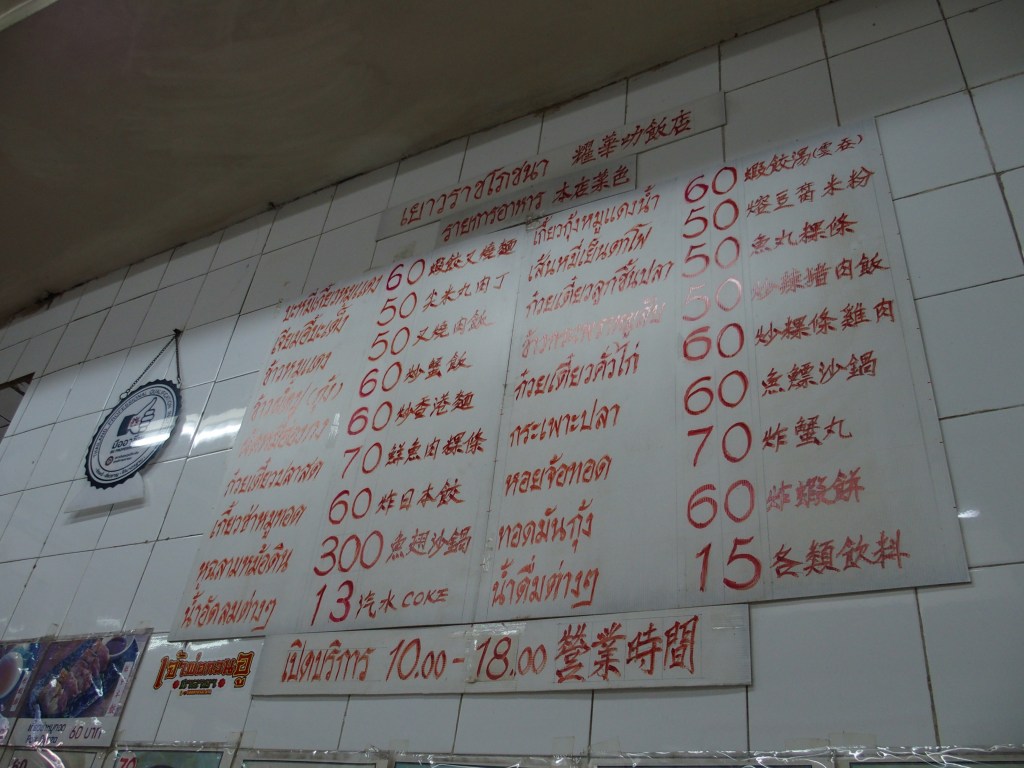 เยาวราชโภชนา 耀華坊飯店
รายการอาหาร 本店菜色
บะหมี่เกี๊ยวหมูแดง 60 蝦餃叉燒麵
50
ข้าวหมูแดง 50 叉燒肉飯
60 炒蟹飯
60 炒香港麵
ก๋วยเตี๋ยวปลาสด 70 鮮魚肉粿條
เกี๊ยวซ่าหมูทอด 60 炸日本餃
หูฉลามหม้อดิน 300 魚翅沙鍋
น้ำอัดลมต่างๆ 13 汽水 COKE
เกี๊ยวกุ้งหมูแดงน้ำ 60 蝦餃湯
เส้นหมี่เย็นตาโฟ 50 豆腐米粉
ก๋วยเตี๋ยวลูกชิ้นปลา 50 魚丸粿條
50 炒辣猪肉飯
ก๋วยเตี๋ยวคั่วไก่ 60 炒粿條雞肉
กระเพาะปลา 60 魚鰾沙鍋
หอยจ้อทอด 70 炸蟹丸
ทอดมันกุ้ง 60 炸蝦餅
น้ำดื่มต่างๆ 15 各類飲料
เปิดบริการ 10.00 - 18.00 營業時間
60 บาท
70